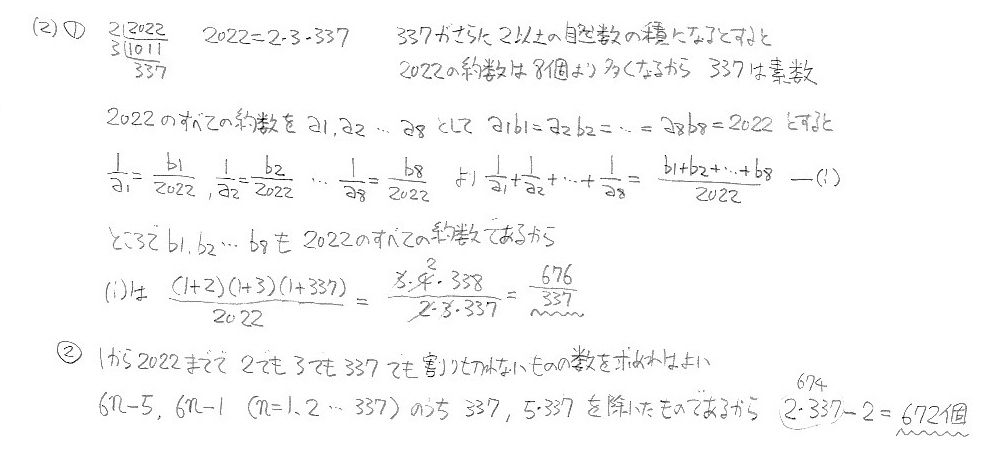 (2) ① 2)2022 2022=2・3・337 337がさらに2以上の自然数の積になるとすると
3)1011 2022の約数は8個より多くなるから 337は素数
337
2022のすべての約数を a1, a2 … a8 として a1b1=a2b2=…=a8b8=2022 とすると
1/a1=b1/2022, 1/a2=b2/2022 … 1/a8=b8/2022 より 1/a1+1/a2+…+1/a8=(b1+b2+…+b8)/2022 —(i)
ところで b1, b2 … b8 も 2022のすべての約数であるから
(i)は (1+2)(1+3)(1+337)/2022 = 3・4・338/2・3・337 2 = 676/337
② 1から2022までで 2でも3でも337でも割りきれないものの数を求めればよい
674
6n-5, 6n-1 (n=1, 2 … 337) のうち 337, 5・337 を除いたものであるから 2・337-2=672個